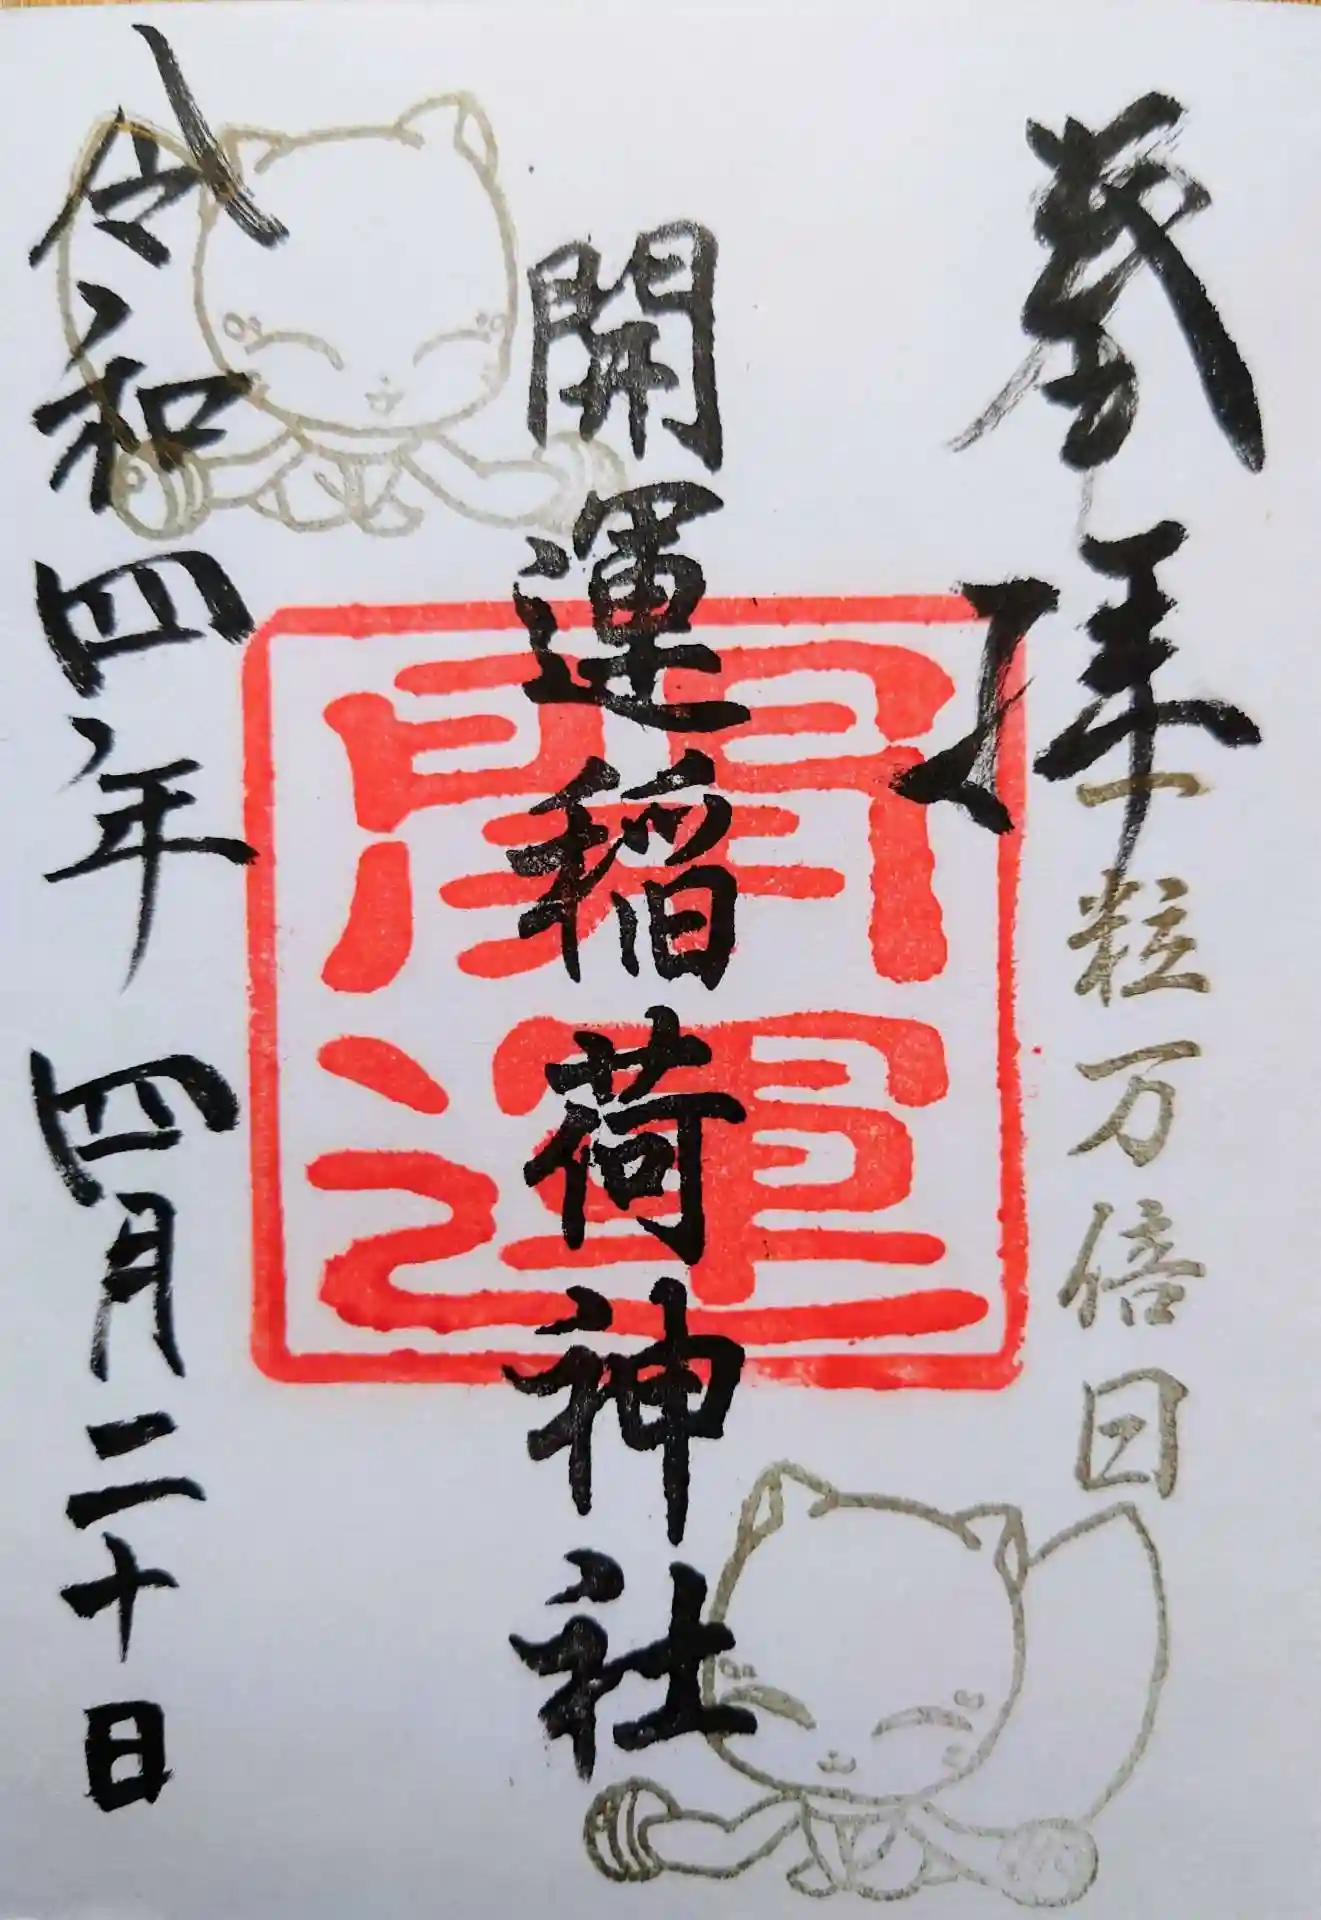 奉拝
一粒万倍日
開運稲荷神社
開運
令和四年四月二十日